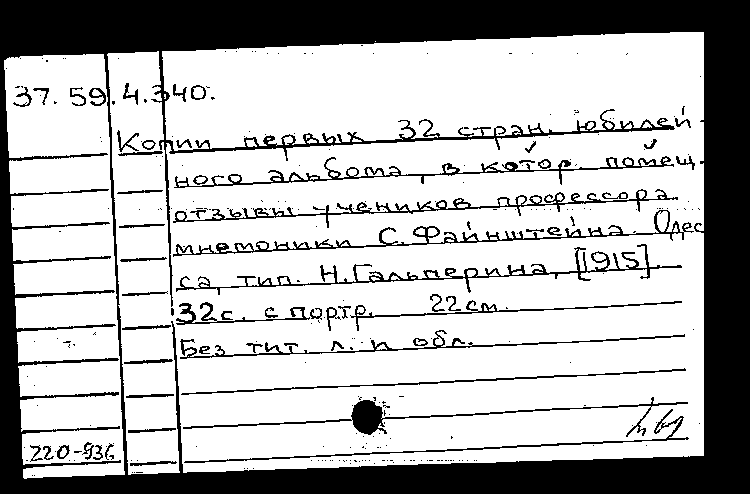 37. 59.4.340.
Копии первых 32 стран. юбилей-
ного альбома, в котор. помещ.
отзывы учеников профессора
мнемоники С. Файнштейна. Одес
са, тип. Н. Гальперина, [1915]
32с. с портр. 22см.
Без тит. л. и обл.
220-936